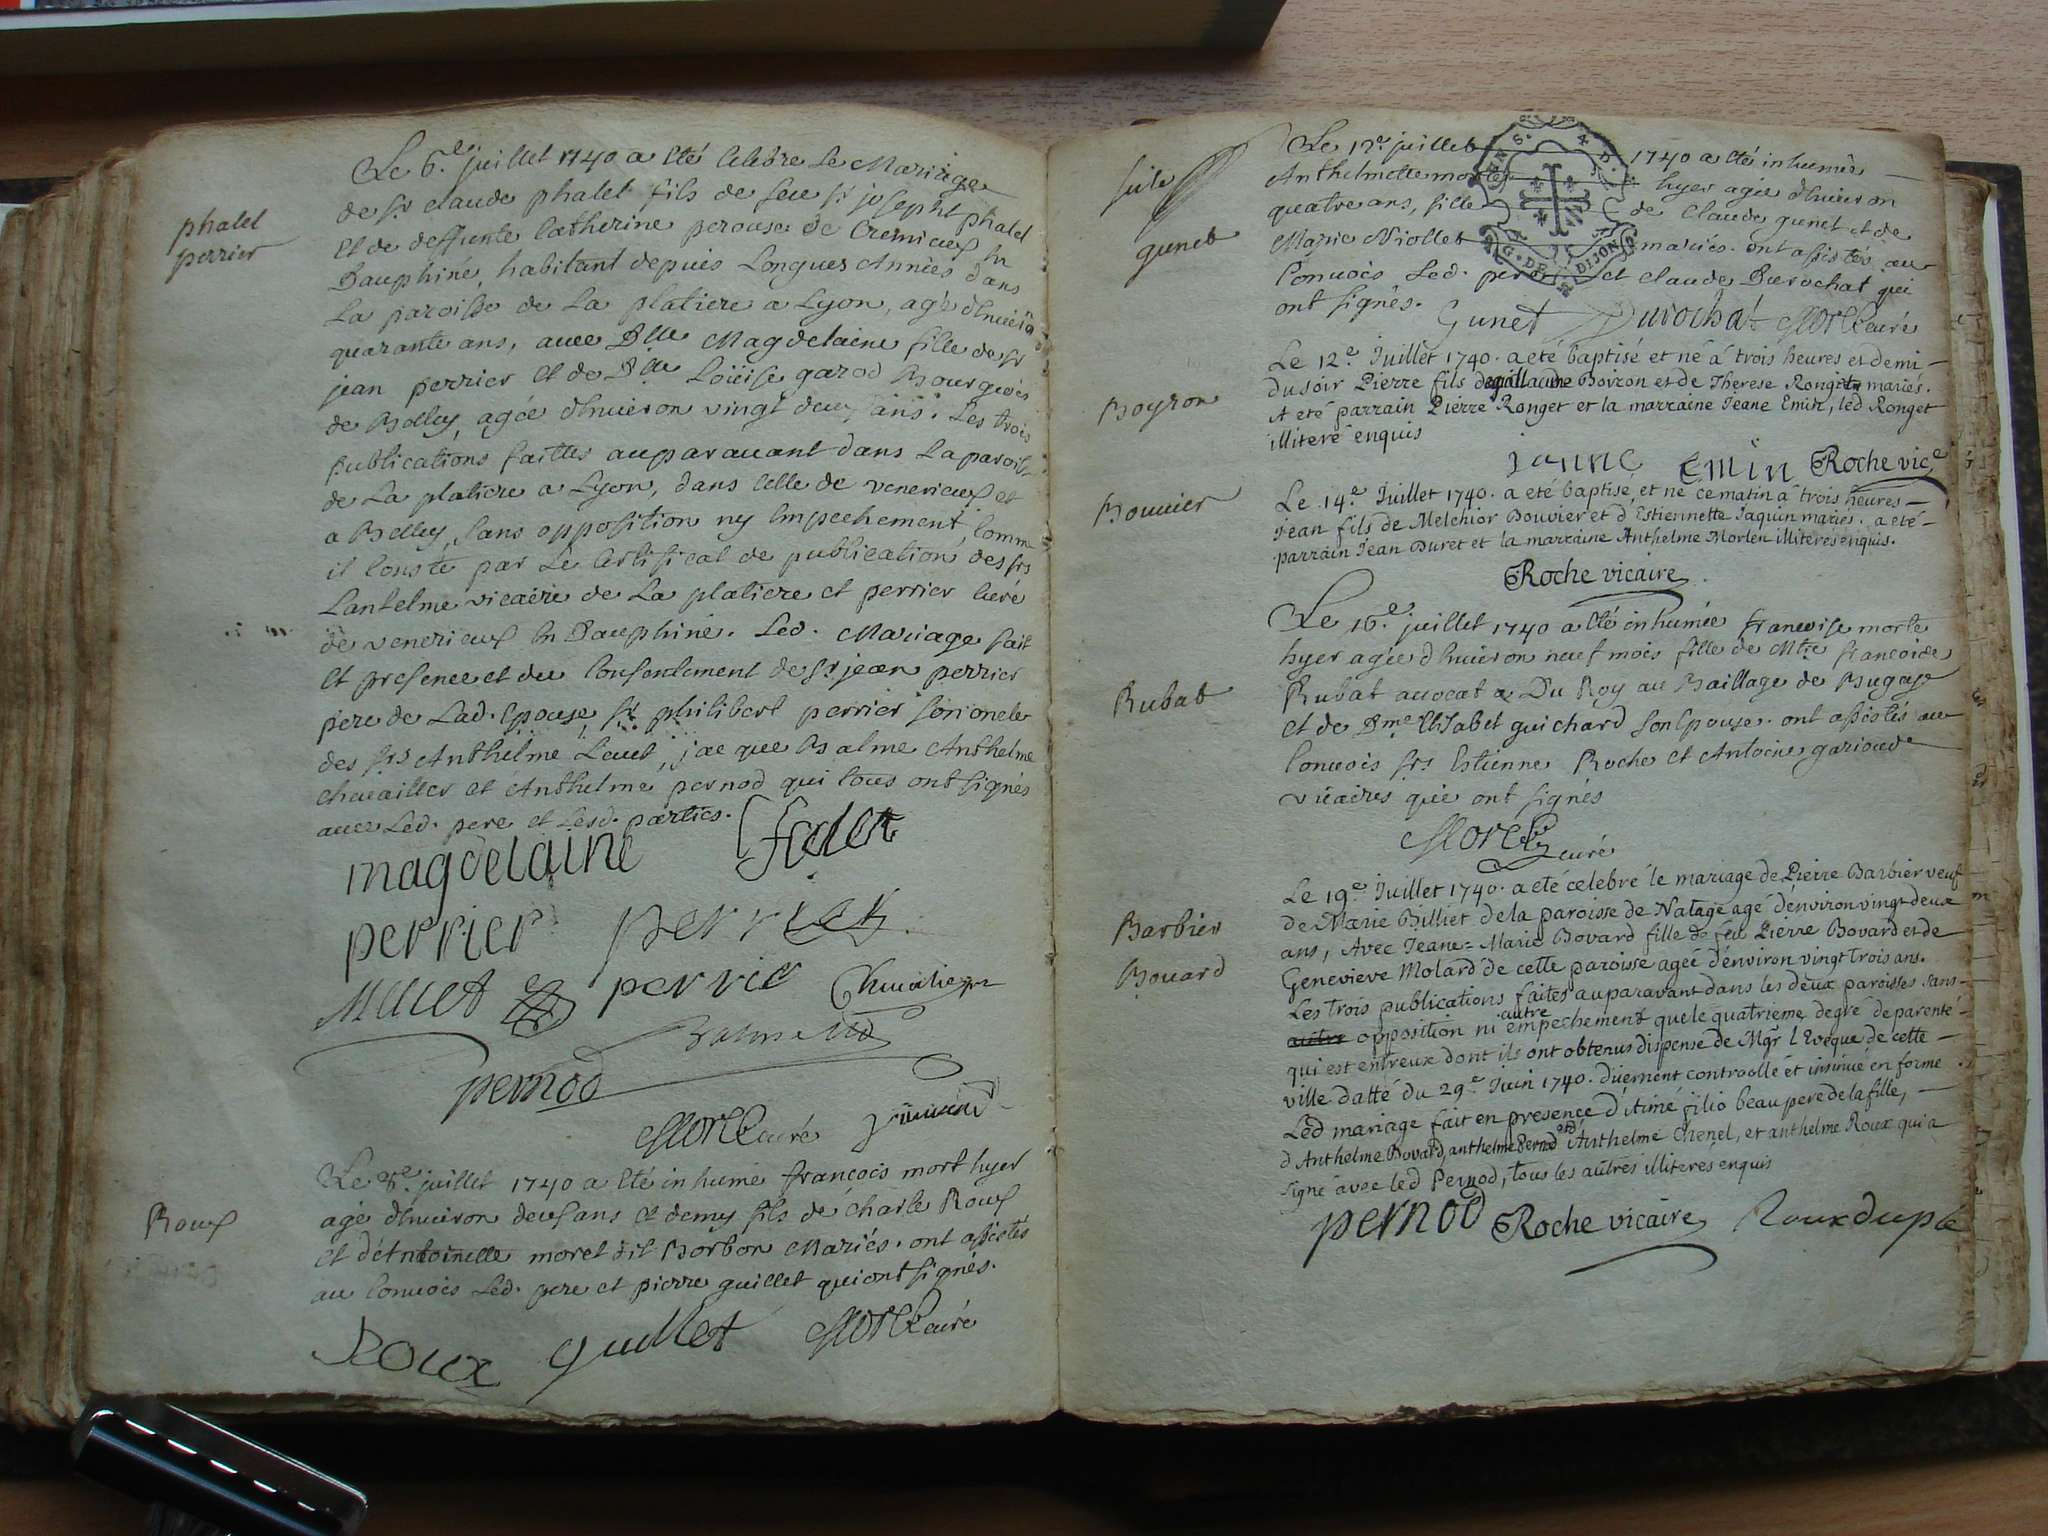 phalet
perrier
Le 6.e juillet 1740 a été celebre le Mariage
de sr claude phalet fils de feu sr josepht phalet
et de deffunte Catherine perouse de Cremieux en
Dauphiné, habitant depuis Longues Années dans
La paroisse de La platiere a Lyon, agé d'environ
quarante ans, avec Dlle Magdelaine fille de sr
jean perrier et de Dlle Loüise garod Bourgeois
de Belley, agée d'environ vingt deux ans. Les trois
publications faittes auparavant dans La paroisse
de La platiere a Lyon, dans celle de venerieux et
a Belley, sans opposition ny Empechement, comme
il conste par Le Certificat de publication des srs
Lantelme vicaire de La platiere et perrier curé
de venerieux en Dauphiné. Led. Mariage fait
et presence et du consentement de sr jean perrier
pere de Lad. Epouse sr philibert perrier son oncle
des srs Anthelme Leuet, jacque Balme Anthelme
chevailler et Anthelme pernod qui tous ont signés
avec Led. pere et Lesd. parties.
magdelaine falet
perrier perrier
perrier Chevalier
Balme
pernod
Morel curé
Roux
Le 8.e juillet 1740 a été inhumé francois mort hyer
agé d'environ deux ans et demy fils de Charle Roux
et d'Antoinette morel dit Borbon Mariés. ont assistés
au convois Led. pere et pierre guillet qui ont signés.
Roux guillet Morel curé
suite
gunet
Le 12.e juillet 1740 a été inhumée
Anthelmette morte hyer agée d'environ
quatre ans, fille de Claude gunet et de
Marie Niollet mariés. ont assistés au
Convois Led. pere et claude Durochat qui
ont signés.
Gunet Durochat Morel curé
Boyron
Le 12.e Juillet 1740. a eté baptisé et né á trois heures et demi
du soir Pierre fils de Boiron et de Therese Ronget mariés.
A eté parrain Pierre Ronget et la marraine Jeane Emin, led Ronget
illiteré enquis
janne Emin Roche vice
Bouvier
Le 14.e Juillet 1740. a eté baptisé, et né ce matin á trois heures
Jean fils de Melchior Bouvier et d'Estiennette Jaquin mariés. a eté
parrain Jean Duret et la marraine Anthelme Morlen illiterés enquis.
Roche vicaire
Rubat
Le 16.e juillet 1740 a été inhumée francoise morte
hyer agée d'environ neuf mois fille de Mtre francois
Rubat avocat Du Roy au Baillage de Bugey
et de Dme Elisabet guichard son Epouse. ont assistés au
Convois srs Estienne Roche et Antoine garioud
vicaires qui ont signés
Morel curé
Barbier
Bouard
Le 19.e Juillet 1740. a eté celebré le mariage de Pierre Barbier veuf
de Marie Billiet de la paroisse de Natage agé d'environ vingt deux
ans, Avec Jeane-Marie Bovard fille de feu Pierre Bovard et de
Genevieve Molard de cette paroisse agée d'environ vingt trois ans.
Les trois publications faites auparavant dans les deux paroisses sans
autre opposition ni autre empechement que le quatrieme degré de parenté
qui est entreux dont ils ont obtenus dispense de Mgr l'Eveque de cette
ville datté du 29.e Juin 1740. düement controollé et insinué en forme
Led mariage fait en presence d'Aimé filio beau pere de la fille,
d'Anthelme Bovard, anthelme Pernod Anthelme Chenel, et anthelme Roux qui a
signé avec led Pernod, tous les autres illiterés enquis
pernod Roche vicaire Roux duplé
G. DE DIJON